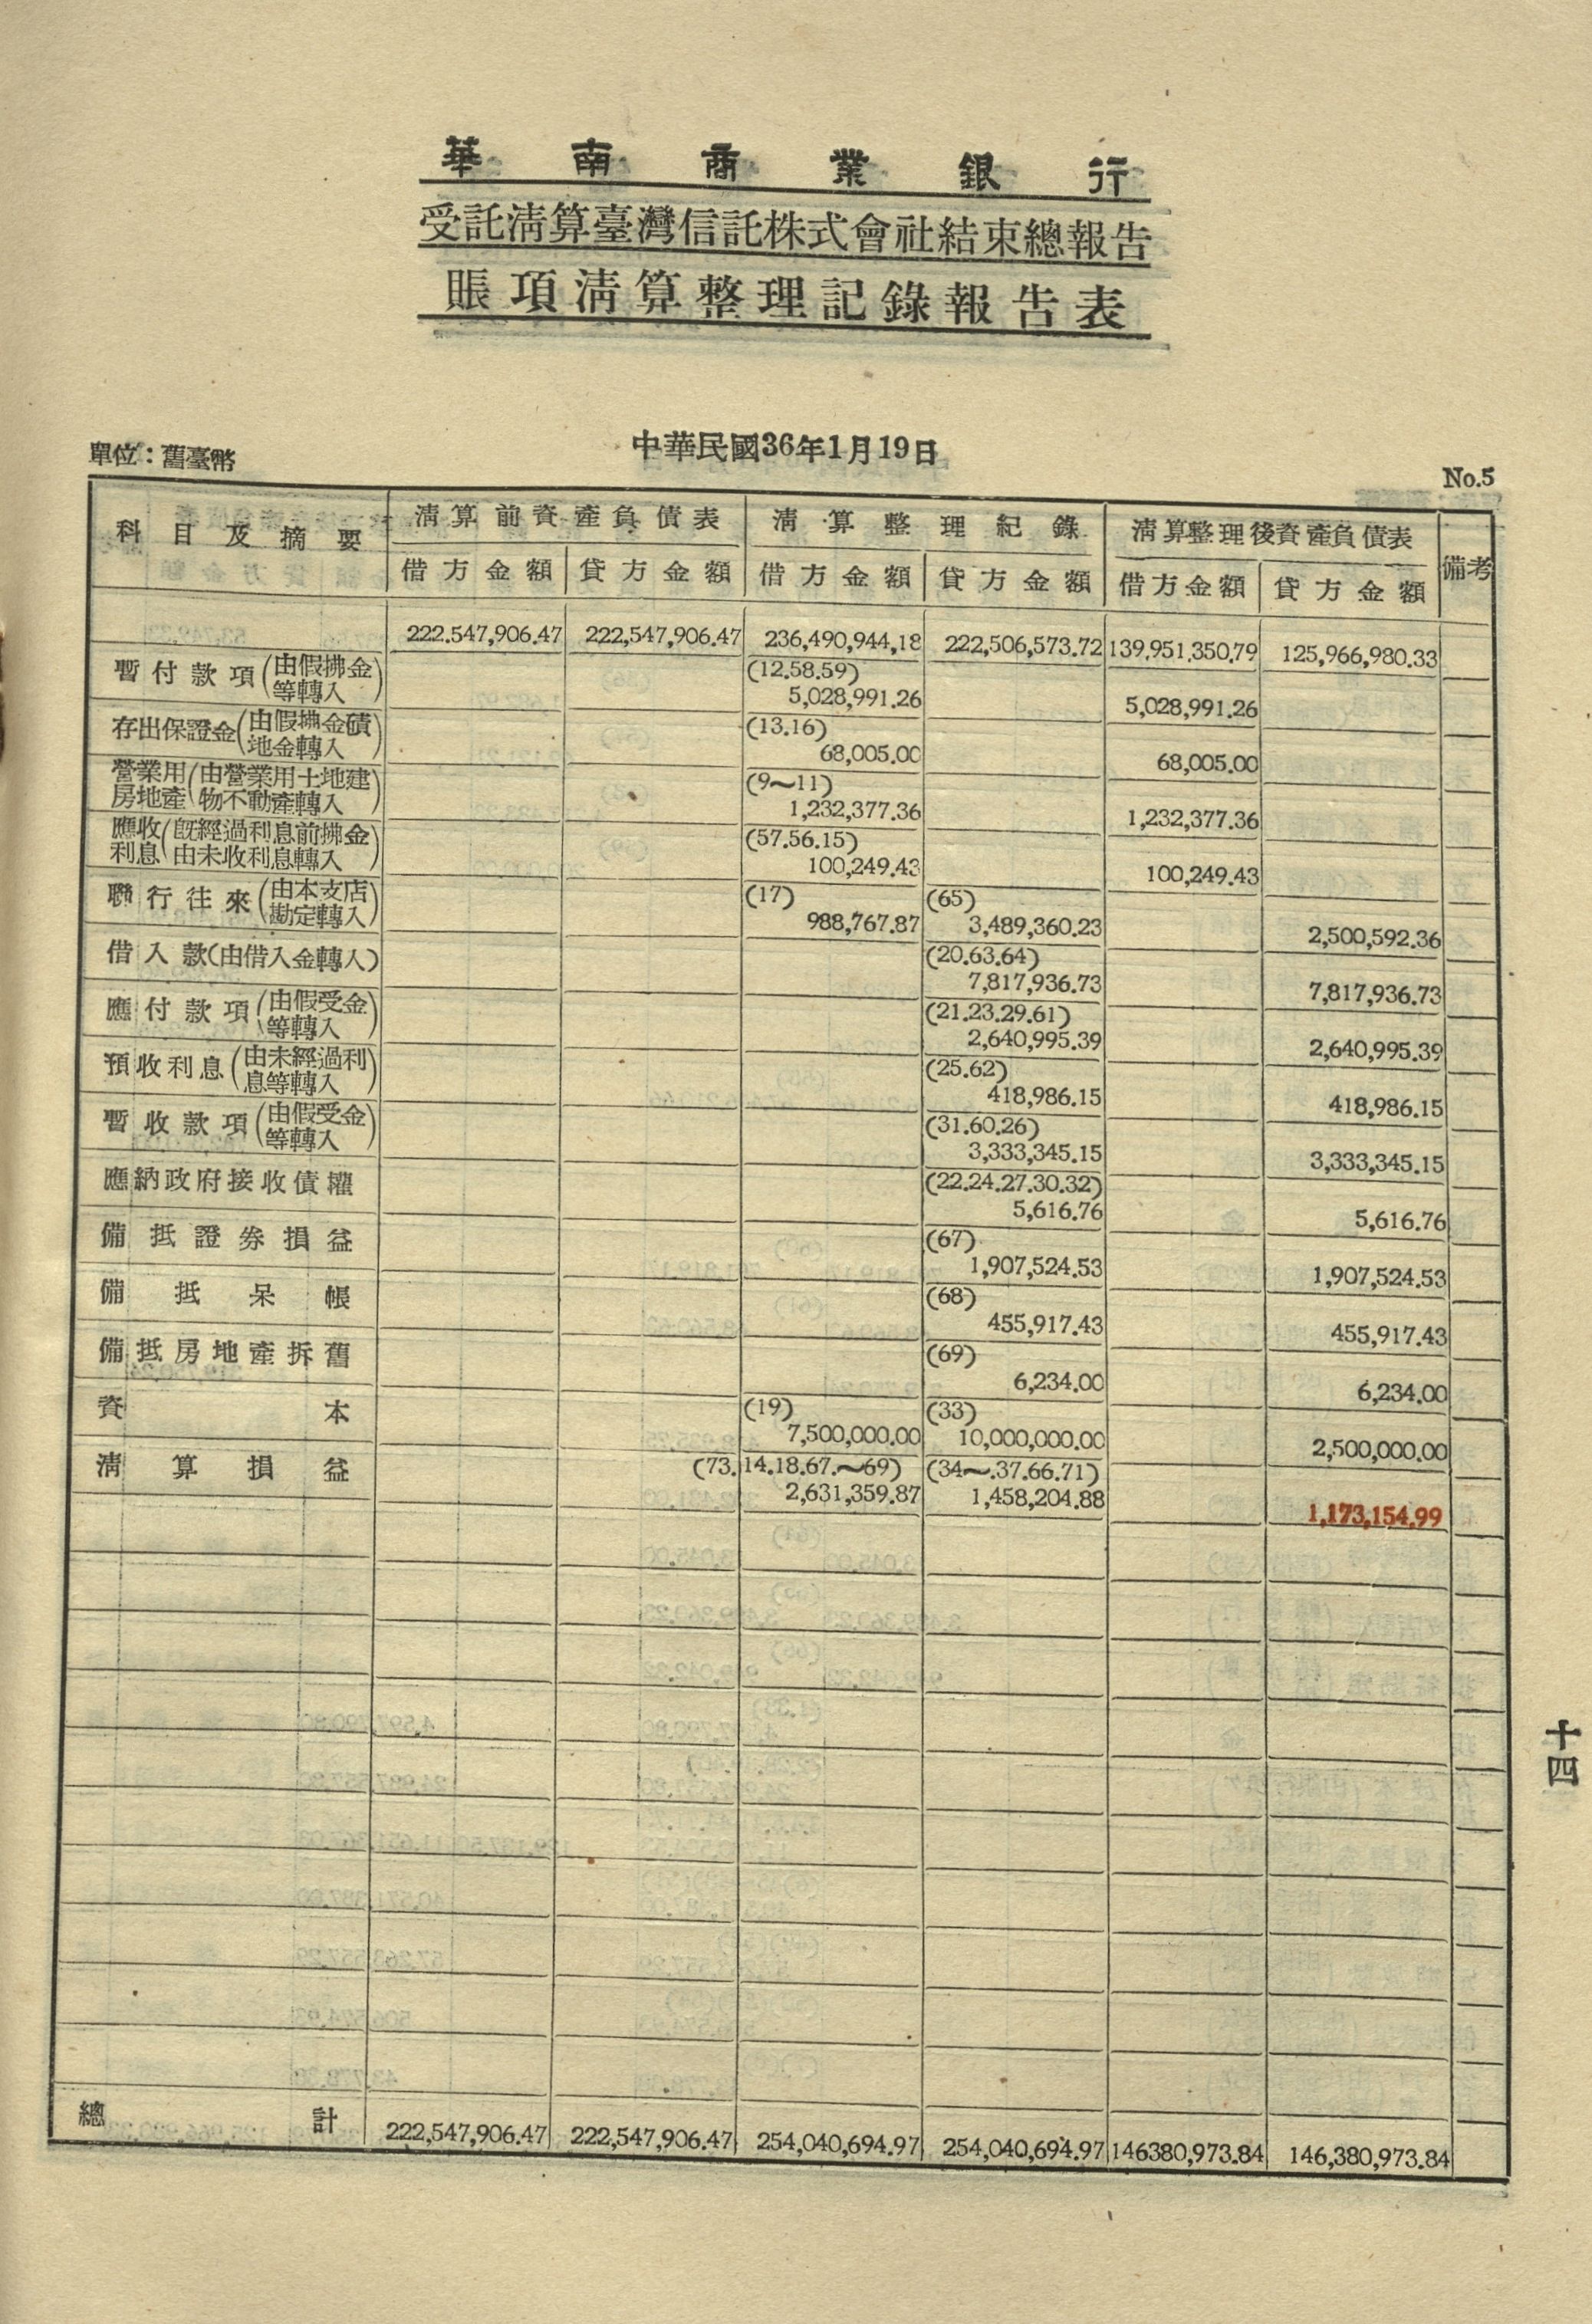 華南商業銀行
受託淸算臺灣信託株式會社結束總報告
賬項淸算整理記錄報告表
中華民國36年1月19日
單位：舊臺幣
No.5
科目及摘要 淸算前資產負債表 淸算整理紀錄 淸算整理後資產負債表 備考
借方金額 貸方金額 借方金額 貸方金額 借方金額 貸方金額
222.547,906.47 222,547,906.47 236,490,944,18 222,506,573.72 139,951,350.79 125,966,980.33
暫付款項(由假拂金等轉入) (12.58.59) 5,028,991.26 5,028,991.26
存出保證金(由假拂金磧地金轉入) (13.16) 68,005.00 68,005.00
營業用房地產(由營業用土地建物不動產轉入) (9～11) 1,232,377.36 1,232,377.36
應收利息(旣經過利息前拂金由未收利息轉入) (57.56.15) 100,249.43 100,249.43
聯行往來(由本支店勘定轉入) (17) 988,767.87 (65) 3,489,360.23 2,500,592.36
借入款(由借入金轉入) (20.63.64) 7,817,936.73 7,817,936.73
應付款項(由假受金等轉入) (21.23.29.61) 2,640,995.39 2,640,995.39
預收利息(由未經過利息等轉入) (25.62) 418,986.15 418,986.15
暫收款項(由假受金等轉入) (31.60.26) 3,333,345.15 3,333,345.15
應納政府接收債權 (22.24.27.30.32) 5,616.76 5,616.76
備抵證券損益 (67) 1,907,524.53 1,907,524.53
備抵呆帳 (68) 455,917.43 455,917.43
備抵房地產拆舊 (69) 6,234.00 6,234.00
資本 (19) 7,500,000.00 (33) 10,000,000.00 2,500,000.00
淸算損益 (73.14.18.67.～69) 2,631,359.87 (34～.37.66.71) 1,458,204.88 1,173,154.99
總計 222,547,906.47 222,547,906.47 254,040,694.97 254,040,694.97 146380,973.84 146,380,973.84
十四